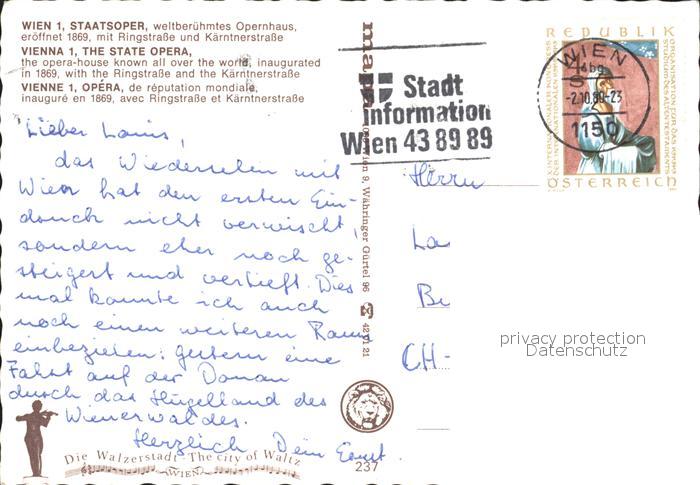 WIEN 1, STAATSOPER, weltberühmtes Opernhaus,
eröffnet 1869, mit Ringstraße und Kärntnerstraße
VIENNA 1, THE STATE OPERA,
the opera-house known all over the world, inaugurated
in 1869, with the Ringstraße and the Kärntnerstraße
VIENNE 1, OPÉRA, de réputation mondiale,
inauguré en 1869, avec Ringstraße et Kärntnerstraße
Lieber Louis,
das Wiedersehen mit
Wien hat den ersten Ein-
druck nicht verwischt
sondern eher noch ge-
steigert und vertieft. Dies
mal konnte ich auch
noch einen weiteren Raum
einbeziehen: gestern eine
Fahrt auf der Donau
durch das Hügelland des
Wienerwaldes.
Herzlich Dein Ernst.
Die Walzerstadt - The city of Waltz
WIEN
237
Wien 9, Währinger Gürtel 96
Stadt
Information
Wien 43 89 89
REPUBLIK
ÖSTERREICH
WIEN
-2.10.80-23
1150
Herrn
La
Be
CH-
privacy protection
Datenschutz